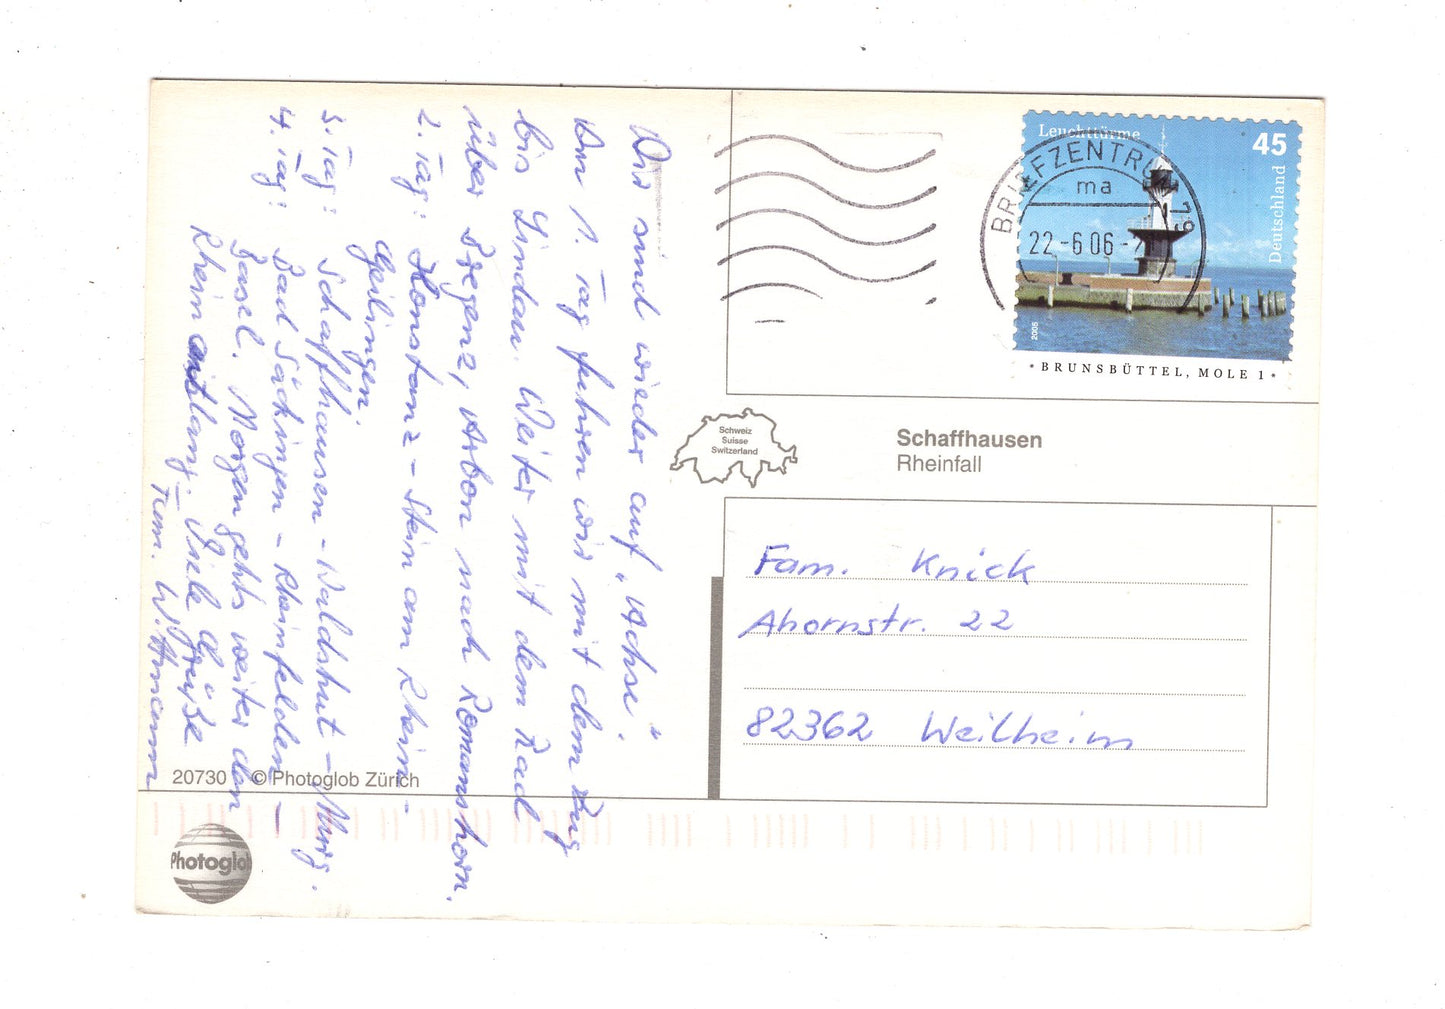 Wir sind wieder auf „Achse".
Am 1. Tag fuhren wir mit dem Zug
bis Lindau. Weiter mit dem Rad
über Bregenz, Arbon nach Romanshorn.
2. Tag: Konstanz - Stein am Rhein -
Gailingen.
3. Tag: Schaffhausen - Waldshut - Murg.
4. Tag: Bad Säckingen - Rheinfelden -
Basel. Morgen gehts weiter den
Rhein entlang. Viele Grüße
Fam. Wittmann
20730 © Photoglob Zürich
Photoglob
Leuchttürme
45
Deutschland
2005
BRUNSBÜTTEL, MOLE 1
BRIEFZENTRUM 79
ma
22-6.06-21
Schweiz
Suisse
Switzerland
Schaffhausen
Rheinfall
Fam. Knick
Ahornstr. 22
82362 Weilheim